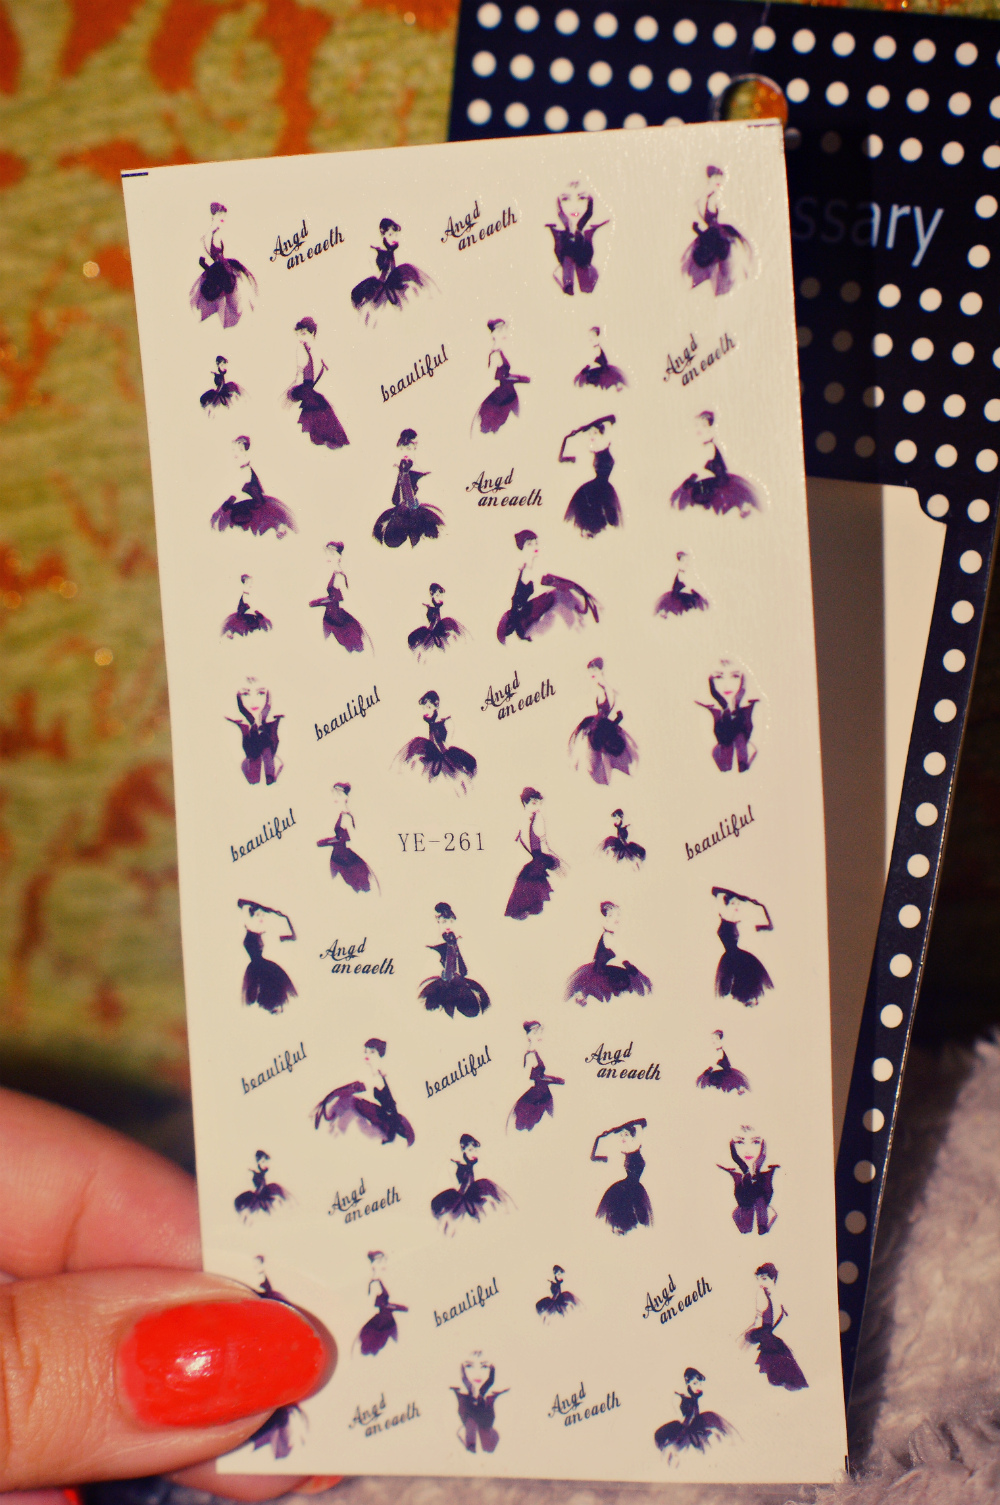 Angd
an eaeth
Angd
an eaeth
ssary
beautiful
Angd
an eaeth
Angd
an eaeth
beautiful
Angd
an eaeth
beautiful
YE-261
beautiful
Angd
an eaeth
beautiful
beautiful
Angd
an eaeth
Angd
an eaeth
beautiful
Angd
an eaeth
Angd
an eaeth
Angd
an eaeth